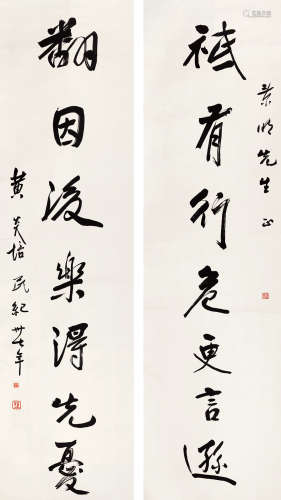 景明先生正
祇有行危更言遜
翻因後樂得先憂
黃炎培民紀卅七年